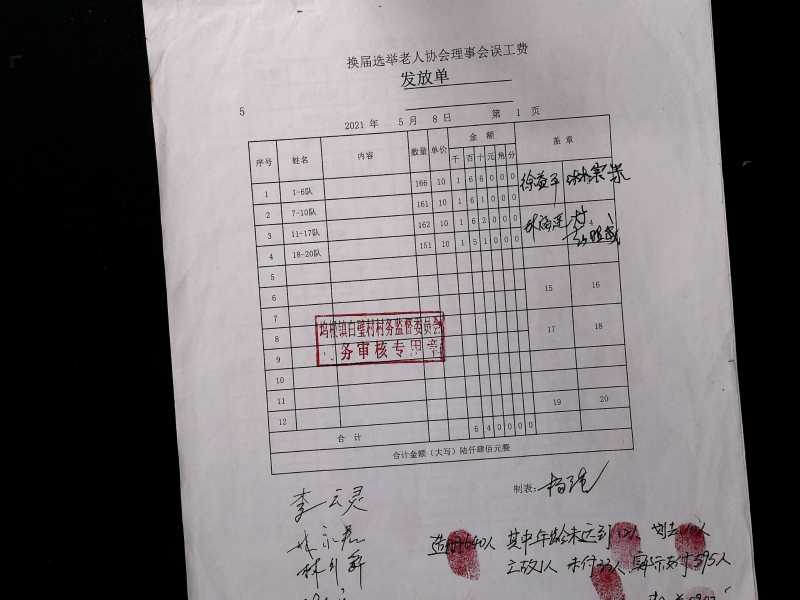 换届选举老人协会理事会误工费
发放单
5 2021 年 5 月 8 日 第 1 页
序号 姓名 内容 数量 单价 金 额 盖 章
千 百 十 元 角 分
1 1-6队 166 10 1 6 6 0 0 0
2 7-10队 161 10 1 6 1 0 0 0
3 11-17队 162 10 1 6 2 0 0 0
4 18-20队 151 10 1 5 1 0 0 0
5
6
7 15 16
坞根镇白璧村村务监督委员会
8 17 18
务审核专用章
9
10
11 19 20
12
合 计 6 4 0 0 0 0
合计金额（大写）陆仟肆佰元整
制表：
李云灵
造册640人 其中年龄未达到 人 划去 人
立故1人 未付33人 实际支付595人